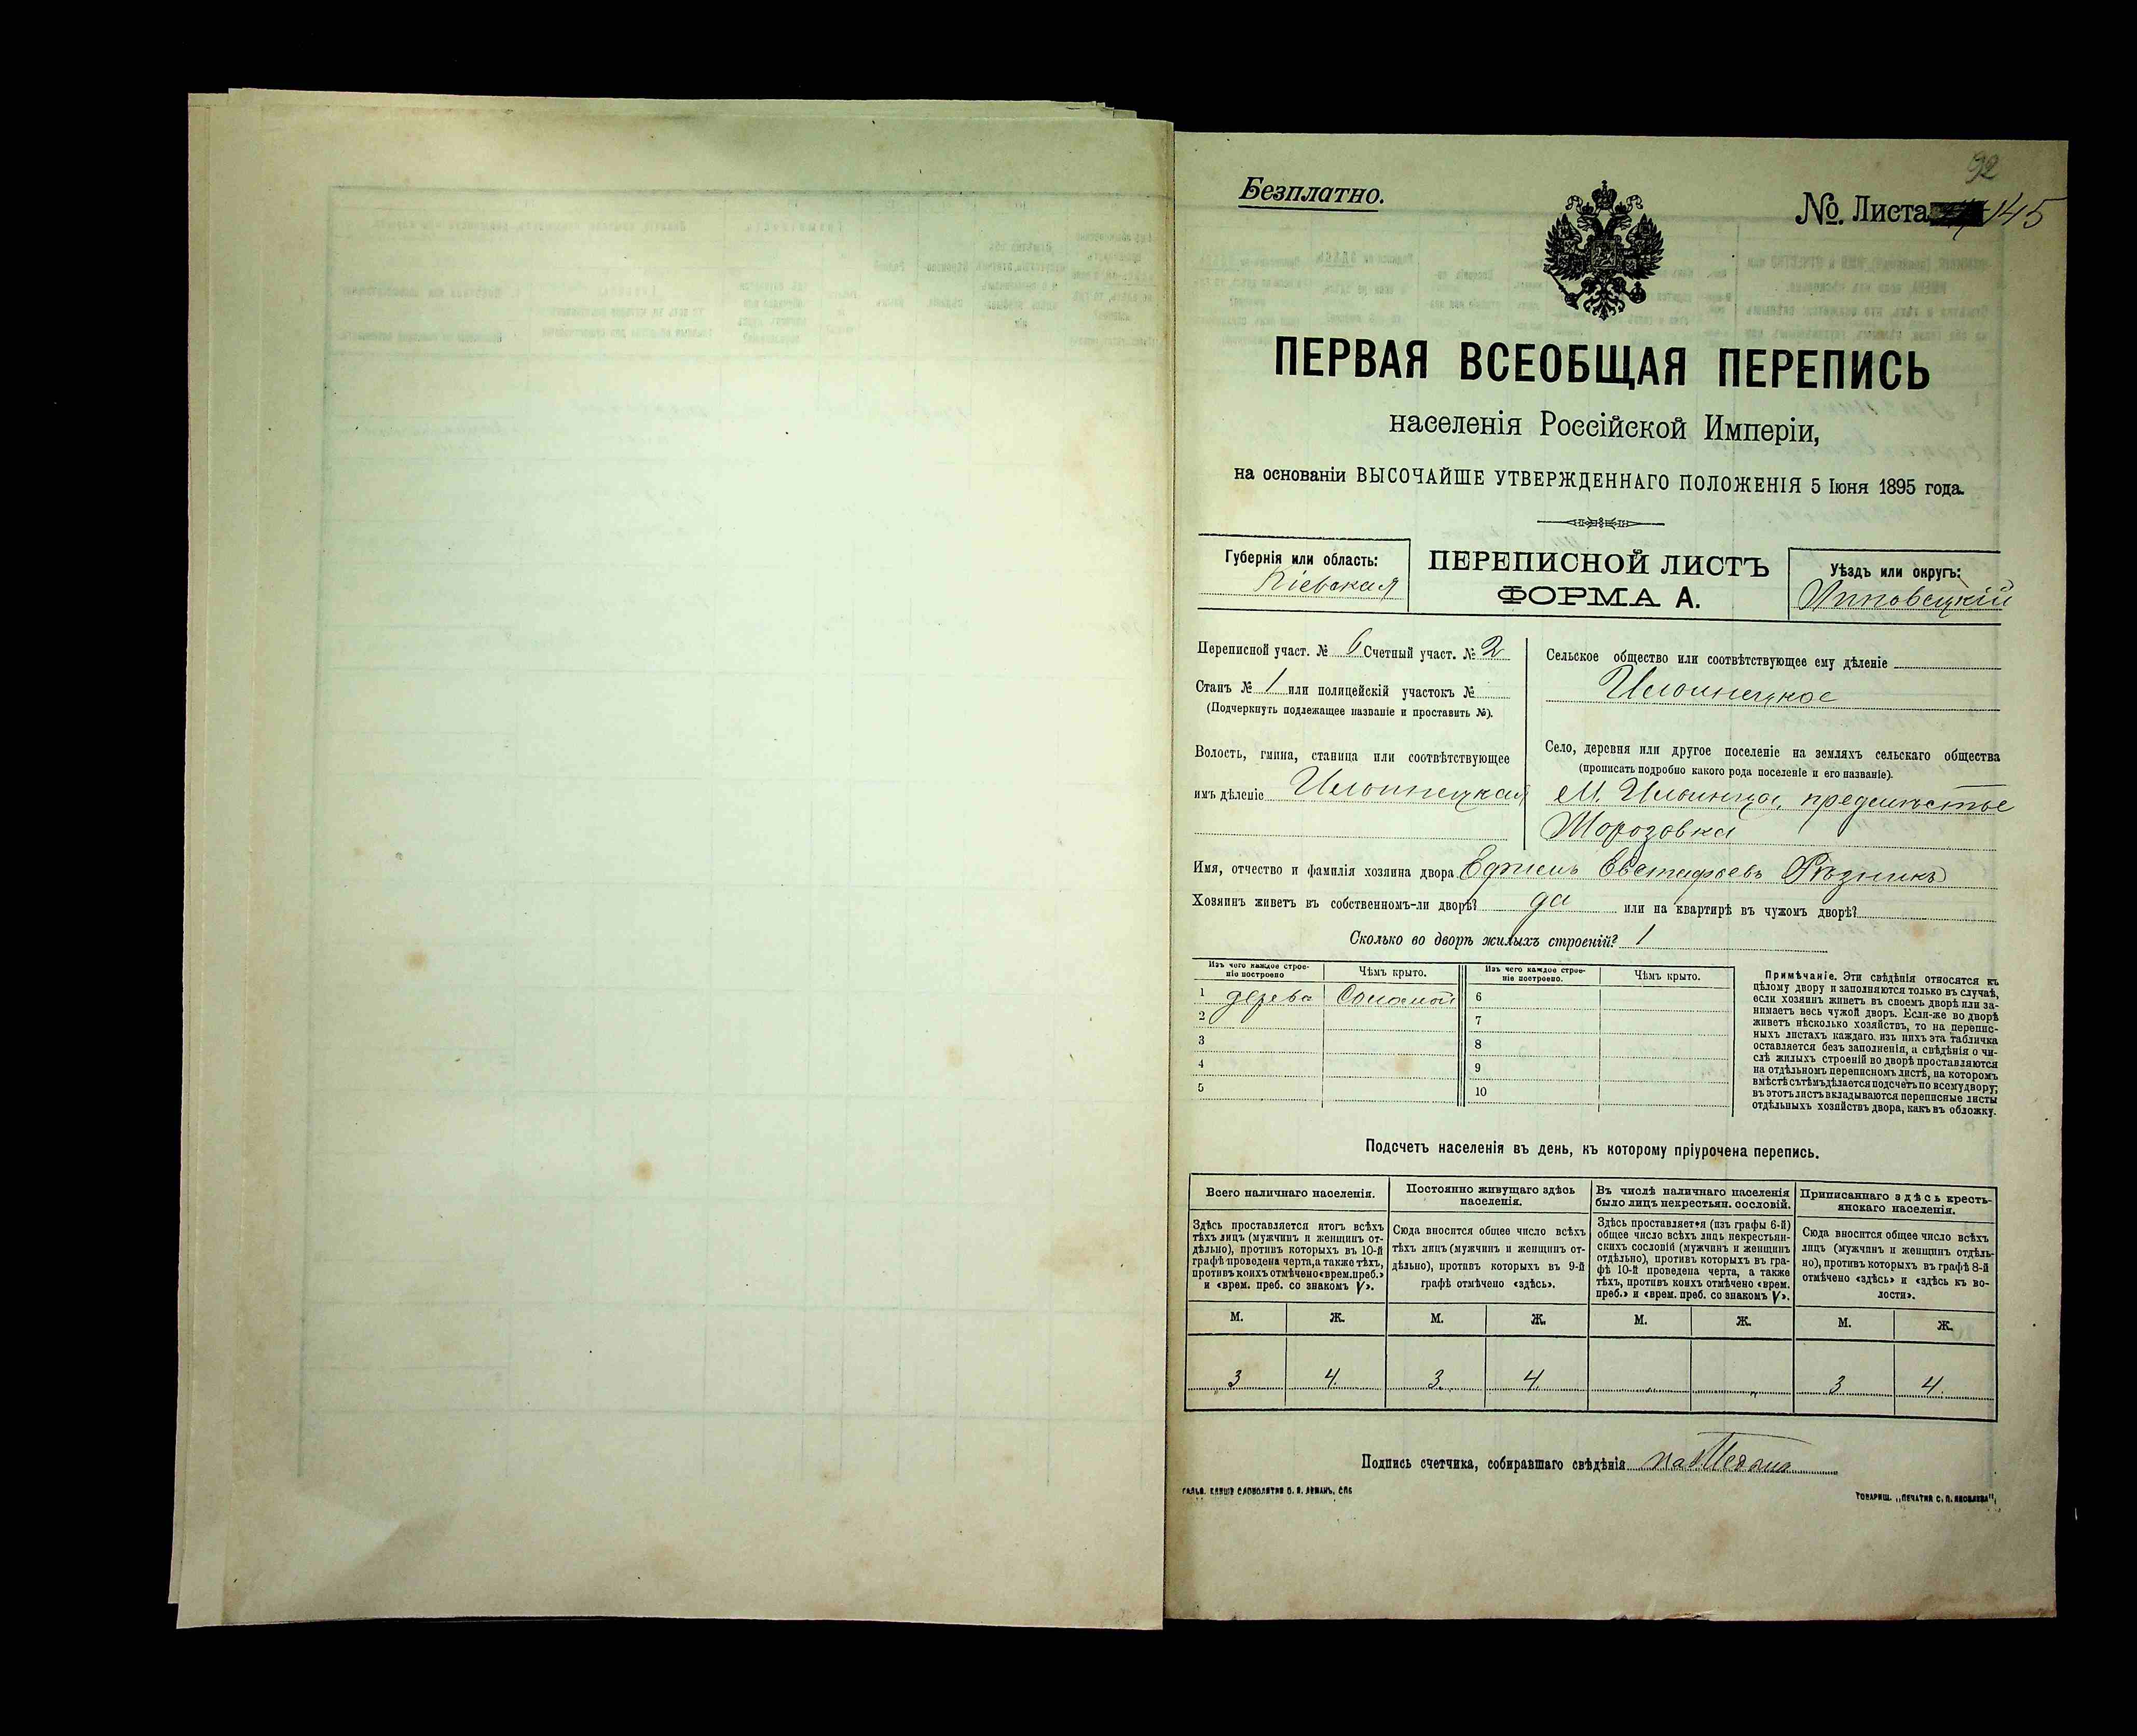 92
Безплатно.
№ Листа 145
ПЕРВАЯ ВСЕОБЩАЯ ПЕРЕПИСЬ
населенія Россійской Имперіи,
на основаніи ВЫСОЧАЙШЕ УТВЕРЖДЕННАГО ПОЛОЖЕНІЯ 5 Іюня 1895 года.
Губернія или область:
Кіевская
ПЕРЕПИСНОЙ ЛИСТЪ
ФОРМА А.
Уѣздъ или округъ:
Липовецкій
Переписной участ. № 6 Счетный участ. № 2
Станъ № 1 или полицейскій участокъ №
(Подчеркнуть подлежащее названіе и проставить №).
Волость, гмина, станица или соотвѣтствующее
имъ дѣленіе Ильинецкая
Сельское общество или соотвѣтствующее ему дѣленіе
Ильинецкое
Село, деревня или другое поселеніе на земляхъ сельскаго общества
(прописать подробно какого рода поселеніе и его названіе).
М. Ильинцы, предмѣстье
Морозовка
Имя, отчество и фамилія хозяина двора Ефимъ Евстафьевъ Рѣзникъ
Хозяинъ живетъ въ собственномъ-ли дворѣ? да или на квартирѣ въ чужомъ дворѣ?
Сколько во дворѣ жилыхъ строеній? 1
Изъ чего каждое строе-
ніе построено
Чѣмъ крыто.
Изъ чего каждое строе-
ніе построено.
Чѣмъ крыто.
1 дерева Соломой 6
2 7
3 8
4 9
5 10
Примѣчаніе. Эти свѣдѣнія относятся къ
цѣлому двору и заполняются только въ случаѣ,
если хозяинъ живетъ въ своемъ дворѣ или за-
нимаетъ весь чужой дворъ. Если-же во дворѣ
живетъ нѣсколько хозяйствъ, то на перепис-
ныхъ листахъ каждаго изъ нихъ эта табличка
оставляется безъ заполненія, а свѣдѣнія о чи-
слѣ жилыхъ строеній во дворѣ проставляются
на отдѣльномъ переписномъ листѣ, на которомъ
вмѣстѣ съ тѣмъ дѣлается подсчетъ по всему двору;
въ этотъ листъ вкладываются переписные листы
отдѣльныхъ хозяйствъ двора, какъ въ обложку.
Подсчетъ населенія въ день, къ которому пріурочена перепись.
Всего наличнаго населенія.
Здѣсь проставляется итогъ всѣхъ
тѣхъ лицъ (мужчинъ и женщинъ от-
дѣльно), противъ которыхъ въ 10-й
графѣ проведена черта, а также тѣхъ,
противъ коихъ отмѣчено «врем. преб.»
и «врем. преб. со знакомъ V».
Постоянно живущаго здѣсь
населенія.
Сюда вносится общее число всѣхъ
тѣхъ лицъ (мужчинъ и женщинъ от-
дѣльно), противъ которыхъ въ 9-й
графѣ отмѣчено «здѣсь».
Въ числѣ наличнаго населенія
было лицъ некрестьян. сословій.
Здѣсь проставляется (изъ графы 6-й)
общее число всѣхъ лицъ некрестьян-
скихъ сословій (мужчинъ и женщинъ
отдѣльно), противъ которыхъ въ гра-
фѣ 10-й проведена черта, а также
тѣхъ, противъ коихъ отмѣчено «врем.
преб.» и «врем. преб. со знакомъ V».
Приписаннаго здѣсь кресть-
янскаго населенія.
Сюда вносится общее число всѣхъ
лицъ (мужчинъ и женщинъ отдѣль-
но), противъ которыхъ въ графѣ 8-й
отмѣчено «здѣсь» и «здѣсь къ во-
лости».
М. Ж. М. Ж. М. Ж. М. Ж.
3 4 3 4 3 4
Подпись счетчика, собиравшаго свѣдѣнія
ТОВАРИЩ. „ПЕЧАТНЯ С. П. ЯКОВЛЕВА“,